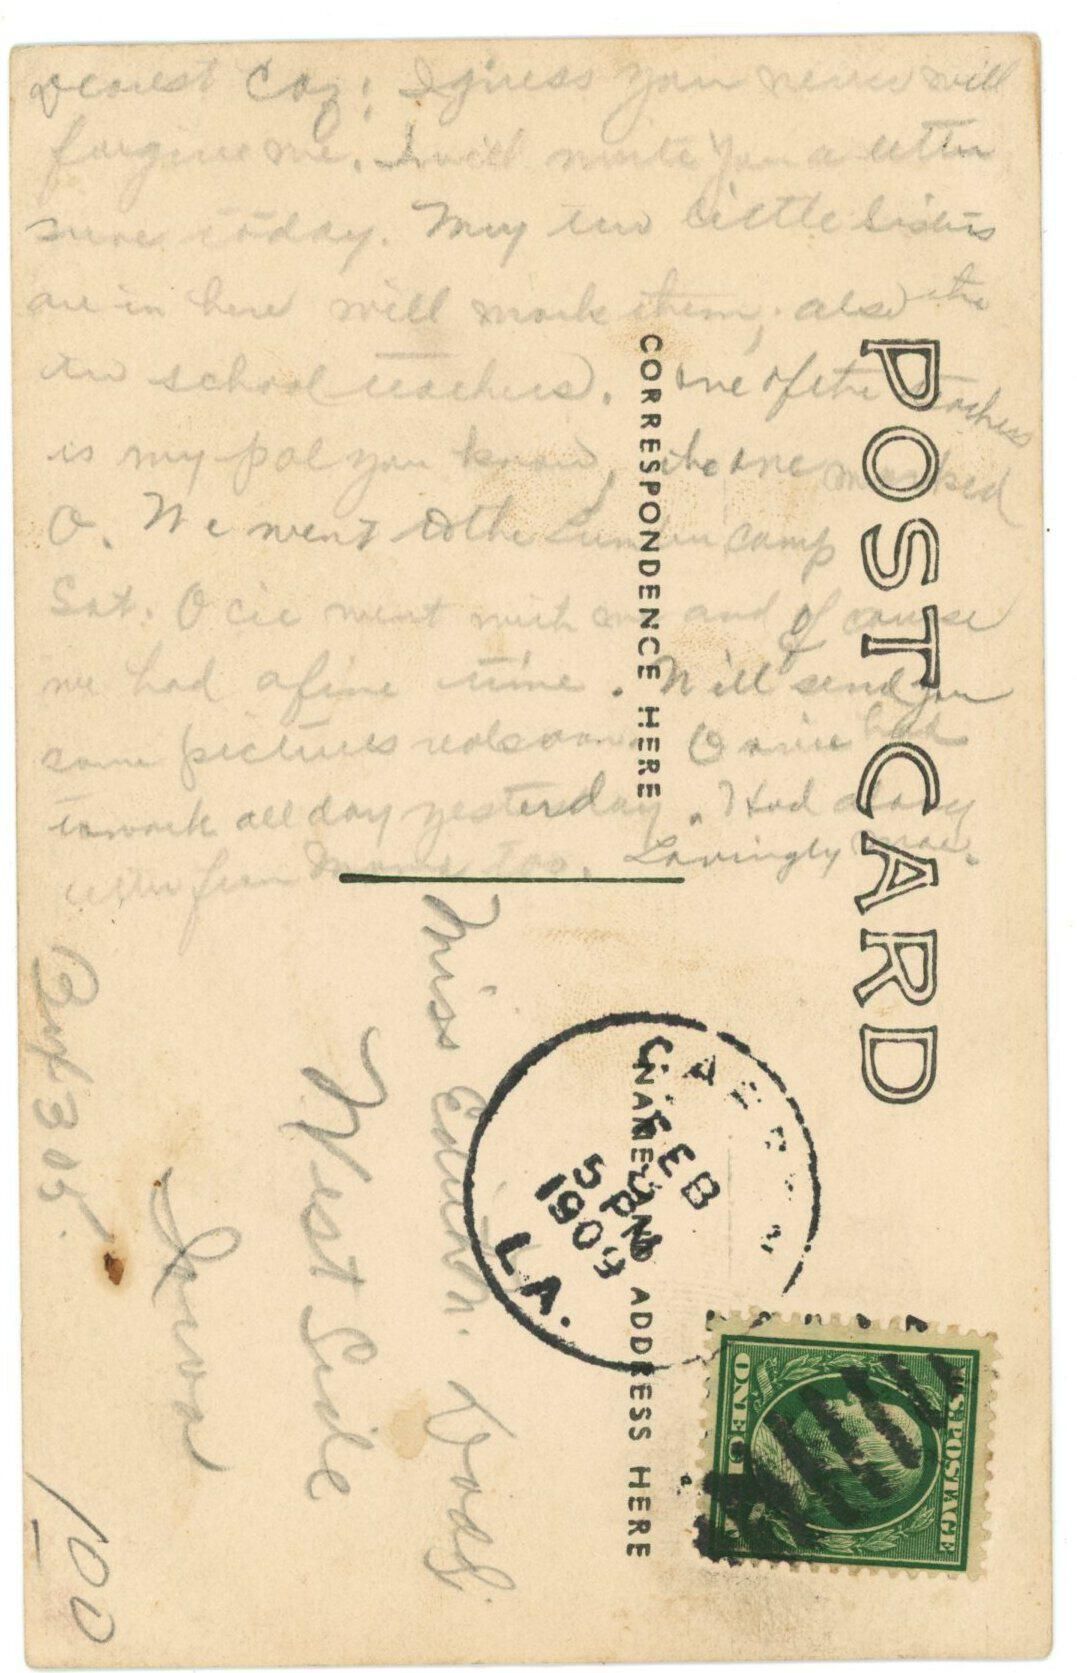 Dearest Coz; I guess you never will
forgive me. I will write you a letter
sure today. My two little sisters
are in here will mark them, also the
two school teachers. One of the teachers
is my pal you know, the one marked
O. We went to the Lumber camp
Sat. Ocie went with me and of course
we had a fine time. Will send you
some pictures real soon. had
to work all day yesterday. Had a long
letter from Mama too. Lovingly Mae.
POST CARD
CORRESPONDENCE HERE
NAME AND ADDRESS HERE
FEB
5 PM
1909
LA.
U.S. POSTAGE
ONE
Miss Edith M. Dodd.
West Side
Iowa
Box 305.
100